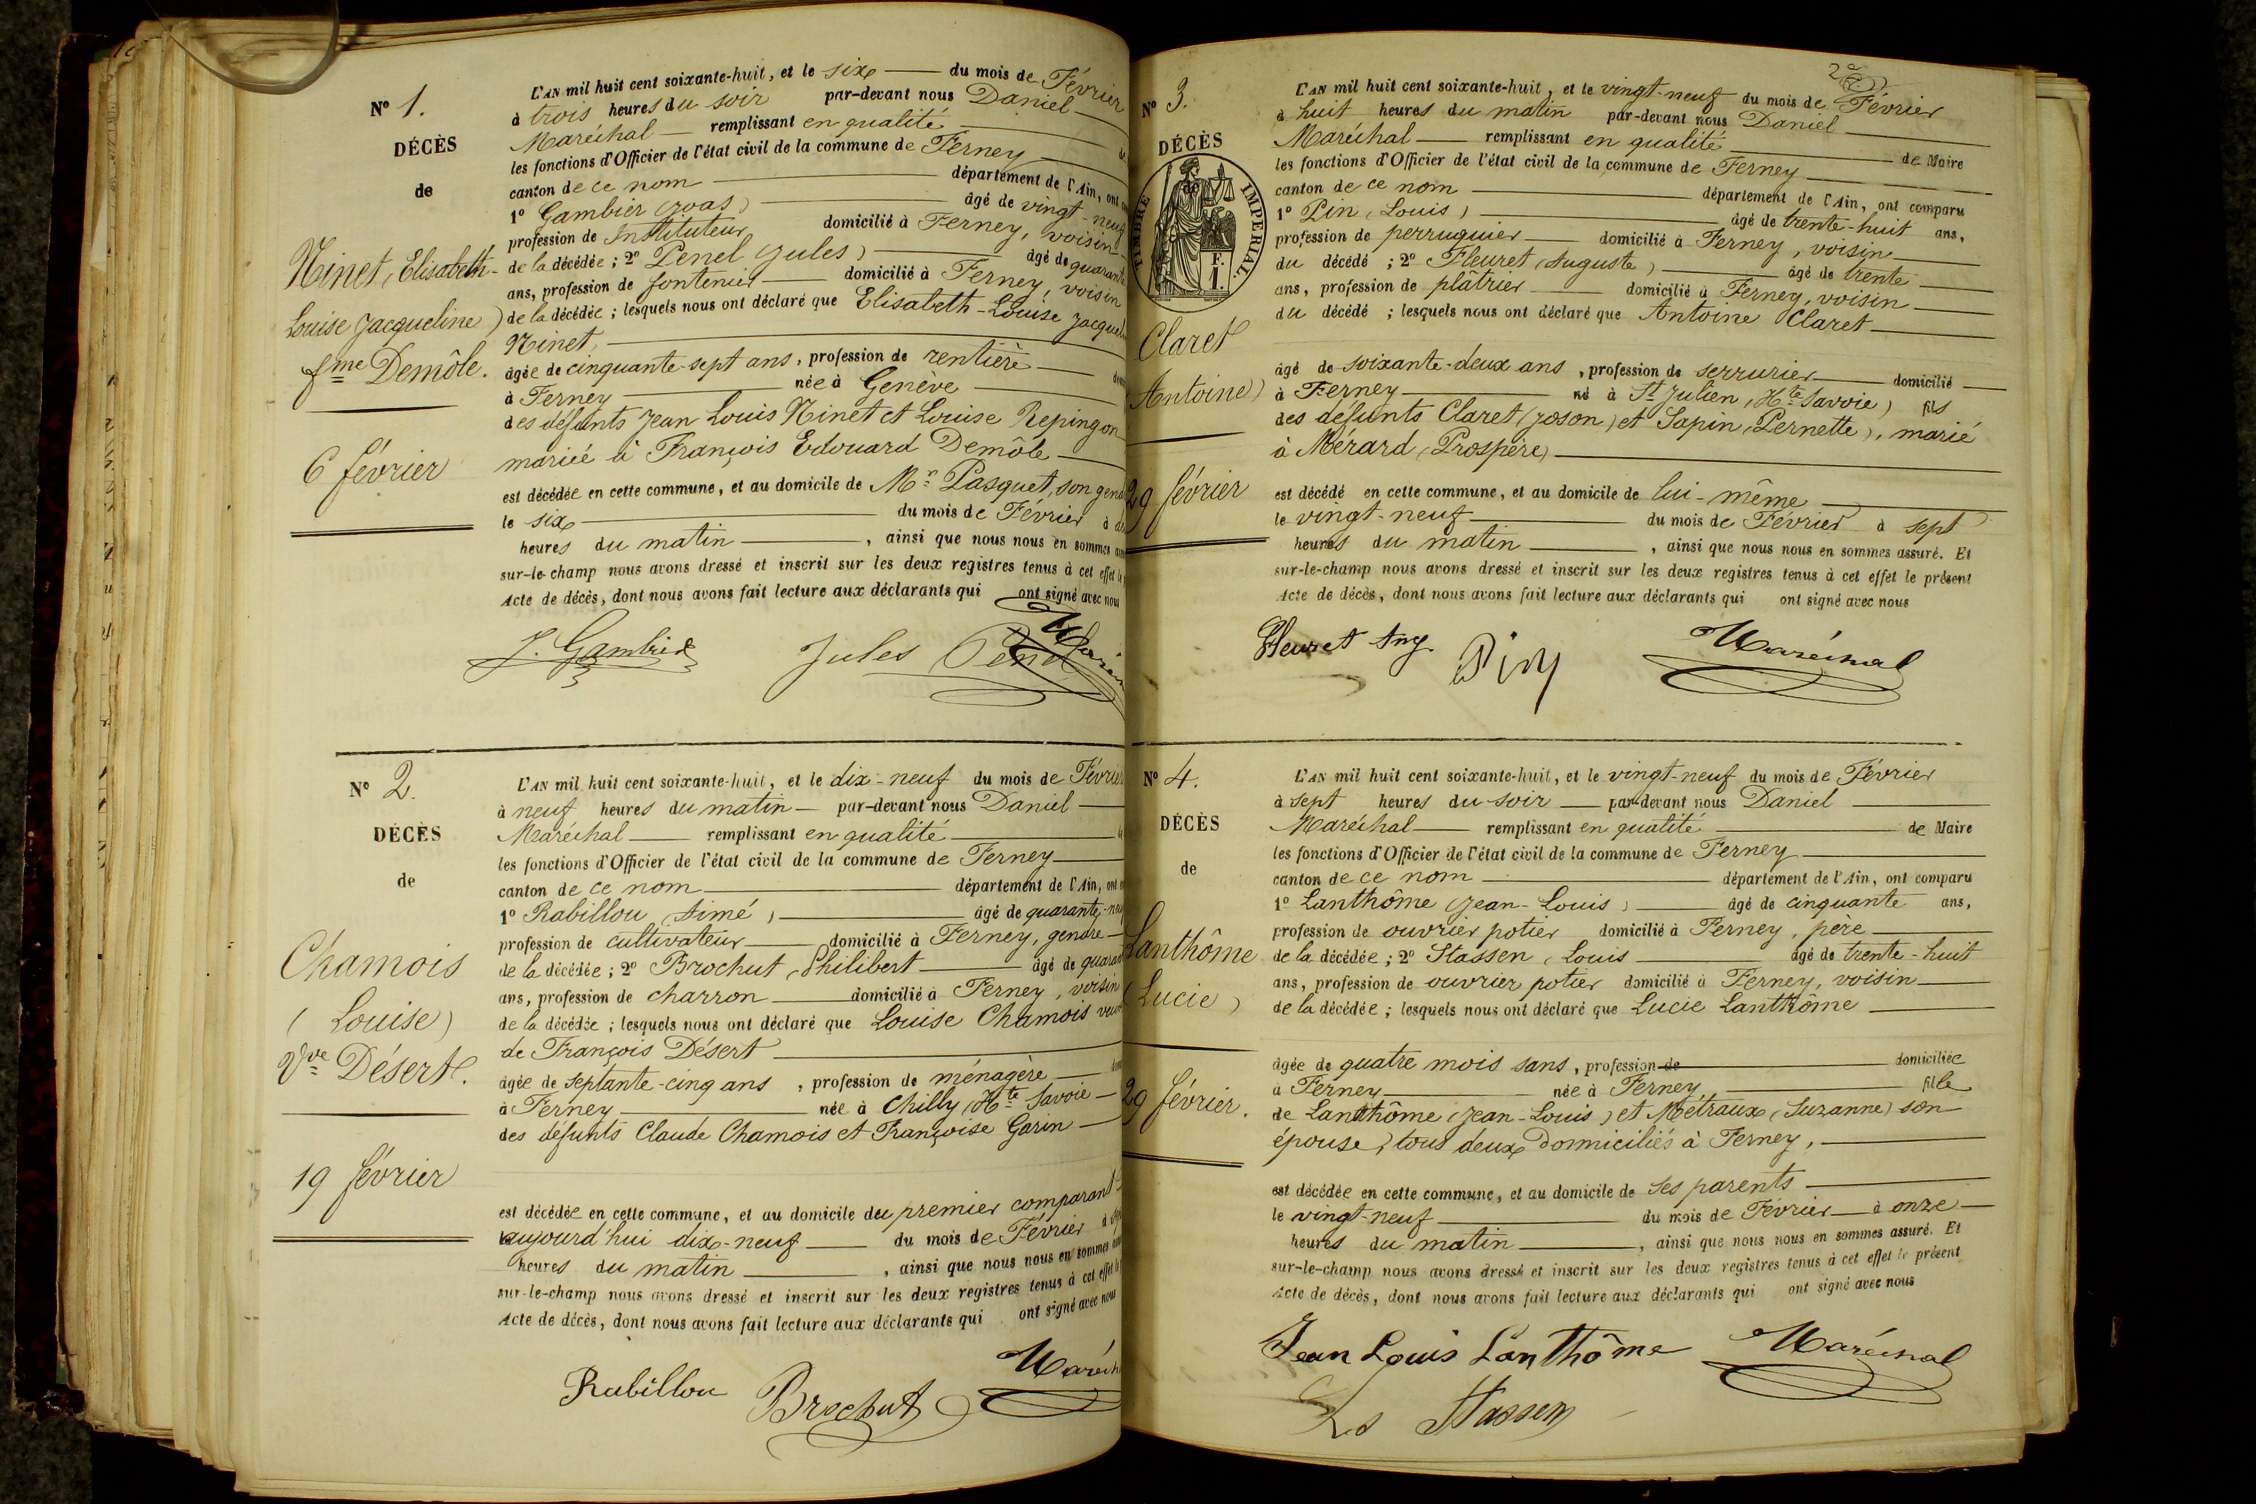 N° 1.
DÉCÈS
de
Ninet, Elisabeth-
Louise Jacqueline)
fme Demôle.
6 février
L'AN mil huit cent soixante-huit, et le six du mois de Février
à trois heures du soir par-devant nous Daniel
Maréchal remplissant en qualité
les fonctions d'Officier de l'état civil de la commune de Ferney
canton de ce nom département de l'Ain, ont
1° Gambier âgé de vingt-neuf
profession de Instituteur domicilié à Ferney, voisin
de la décédée ; 2° Penel (Jules) âgé de quarante
ans, profession de fontenier domicilié à Ferney, voisin
de la décédée ; lesquels nous ont déclaré que Elisabeth-Louise
Ninet,
âgée de cinquante-sept ans, profession de rentière
à Ferney née à Genève
des défunts Jean Louis Ninet et Louise Repingon
mariée à François Edouard Demôle
est décédée en cette commune, et au domicile de Mr Pasquet, son
le six du mois de Février à
heures du matin , ainsi que nous nous en sommes
sur-le-champ nous avons dressé et inscrit sur les deux registres tenus à cet effet
Acte de décès, dont nous avons fait lecture aux déclarants qui ont signé avec nous
J. Gambier Jules Penel
N° 2.
DÉCÈS
de
Chamois
(Louise)
Vve Désert.
19 février
L'AN mil huit cent soixante-huit, et le dix-neuf du mois de Février
à neuf heures du matin par-devant nous Daniel
Maréchal remplissant en qualité
les fonctions d'Officier de l'état civil de la commune de Ferney
canton de ce nom département de l'Ain, ont
1° Rabillou (Aimé) âgé de quarante-neuf
profession de cultivateur domicilié à Ferney, gendre
de la décédée ; 2° Brochut, Philibert âgé de
ans, profession de charron domicilié à Ferney, voisin
de la décédée ; lesquels nous ont déclaré que Louise Chamois
de François Désert
âgée de septante-cinq ans , profession de ménagère
à Ferney née à Chilly, Hte Savoie
des défunts Claude Chamois et Françoise Garin
est décédée en cette commune, et au domicile du premier comparant
aujourd'hui dix-neuf du mois de Février à
heures du matin , ainsi que nous nous en sommes
sur-le-champ nous avons dressé et inscrit sur les deux registres tenus à cet effet
Acte de décès, dont nous avons fait lecture aux déclarants qui ont signé avec nous
Rabillou Brochut
N° 3.
DÉCÈS
de
TIMBRE IMPERIAL.
1 F.
Claret
Antoine)
29 février
L'AN mil huit cent soixante-huit, et le vingt-neuf du mois de Février
à huit heures du matin par-devant nous Daniel
Maréchal remplissant en qualité de Maire
les fonctions d'Officier de l'état civil de la commune de Ferney
canton de ce nom département de l'Ain, ont comparu
1° Pin (Louis) âgé de trente-huit ans,
profession de perruquier domicilié à Ferney, voisin
du décédé ; 2° Fleuret (Auguste) âgé de trente
ans, profession de plâtrier domicilié à Ferney, voisin
du décédé ; lesquels nous ont déclaré que Antoine Claret
âgé de soixante-deux ans , profession de serrurier domicilié
à Ferney né à St Julien, (Hte Savoie) fils
des défunts Claret (Joson) et Sapin (Pernette), marié
à Mérard (Prospère)
est décédé en cette commune, et au domicile de lui-même
le vingt-neuf du mois de Février à sept
heures du matin , ainsi que nous nous en sommes assuré. Et
sur-le-champ nous avons dressé et inscrit sur les deux registres tenus à cet effet le présent
Acte de décès, dont nous avons fait lecture aux déclarants qui ont signé avec nous
Fleuret Aug. Pin Maréchal
N° 4.
DÉCÈS
de
Lanthôme
(Lucie)
29 février.
L'AN mil huit cent soixante-huit, et le vingt-neuf du mois de Février
à sept heures du soir par-devant nous Daniel
Maréchal remplissant en qualité de Maire
les fonctions d'Officier de l'état civil de la commune de Ferney
canton de ce nom département de l'Ain, ont comparu
1° Lanthôme (Jean-Louis) âgé de cinquante ans,
profession de ouvrier potier domicilié à Ferney, père
de la décédée ; 2° Stassen, Louis âgé de trente-huit
ans, profession de ouvrier potier domicilié à Ferney, voisin
de la décédée ; lesquels nous ont déclaré que Lucie Lanthôme
âgée de quatre mois sans, profession de domiciliée
à Ferney née à Ferney fille
de Lanthôme (Jean-Louis) et Métraux (Suzanne) son
épouse, tous deux domiciliés à Ferney,
est décédée en cette commune, et au domicile de ses parents
le vingt-neuf du mois de Février à onze
heures du matin , ainsi que nous nous en sommes assuré. Et
sur-le-champ nous avons dressé et inscrit sur les deux registres tenus à cet effet le présent
Acte de décès, dont nous avons fait lecture aux déclarants qui ont signé avec nous
Jean Louis Lanthôme Maréchal
Ls Stassen